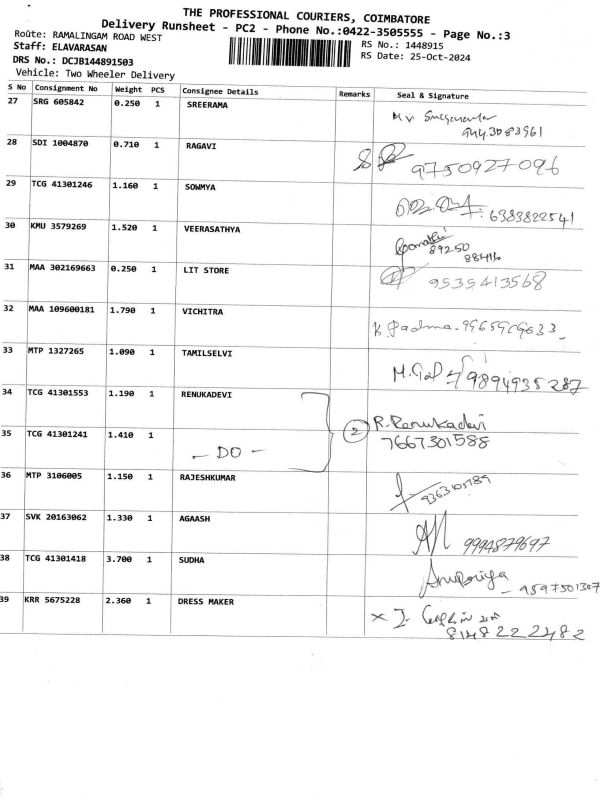 THE PROFESSIONAL COURIERS, COIMBATORE
Delivery Runsheet - PC2 - Phone No.:0422-3505555 - Page No.:3
Route: RAMALINGAM ROAD WEST
RS No.: 1448915
Staff: ELAVARASAN
RS Date: 25-Oct-2024
DRS No.: DCJB144891503
Vehicle: Two Wheeler Delivery
S No Consignment No Weight PCS Consignee Details Remarks Seal & Signature
27 SRG 605842 0.250 1 SREERAMA
9443083961
28 SDI 1004870 0.710 1 RAGAVI
9750927096
29 TCG 41301246 1.160 1 SOWMYA
6383822541
30 KMU 3579269 1.520 1 VEERASATHYA
89250
88416
31 MAA 302169663 0.250 1 LIT STORE
9535413568
32 MAA 109600181 1.790 1 VICHITRA
K. Padma.
33 MTP 1327265 1.090 1 TAMILSELVI
9894935287
34 TCG 41301553 1.190 1 RENUKADEVI
2 R. Renukadevi
7667301588
35 TCG 41301241 1.410 1
- DO -
36 MTP 3106005 1.150 1 RAJESHKUMAR
37 SVK 20163062 1.330 1 AGAASH
9994879697
38 TCG 41301418 3.700 1 SUDHA
Anupriya
- 9597501307
39 KRR 5675228 2.360 1 DRESS MAKER
8148222482